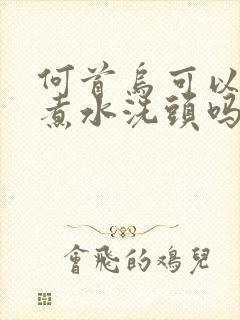 何首烏可以
煮水洗頭嗎
會飛的鴻兒